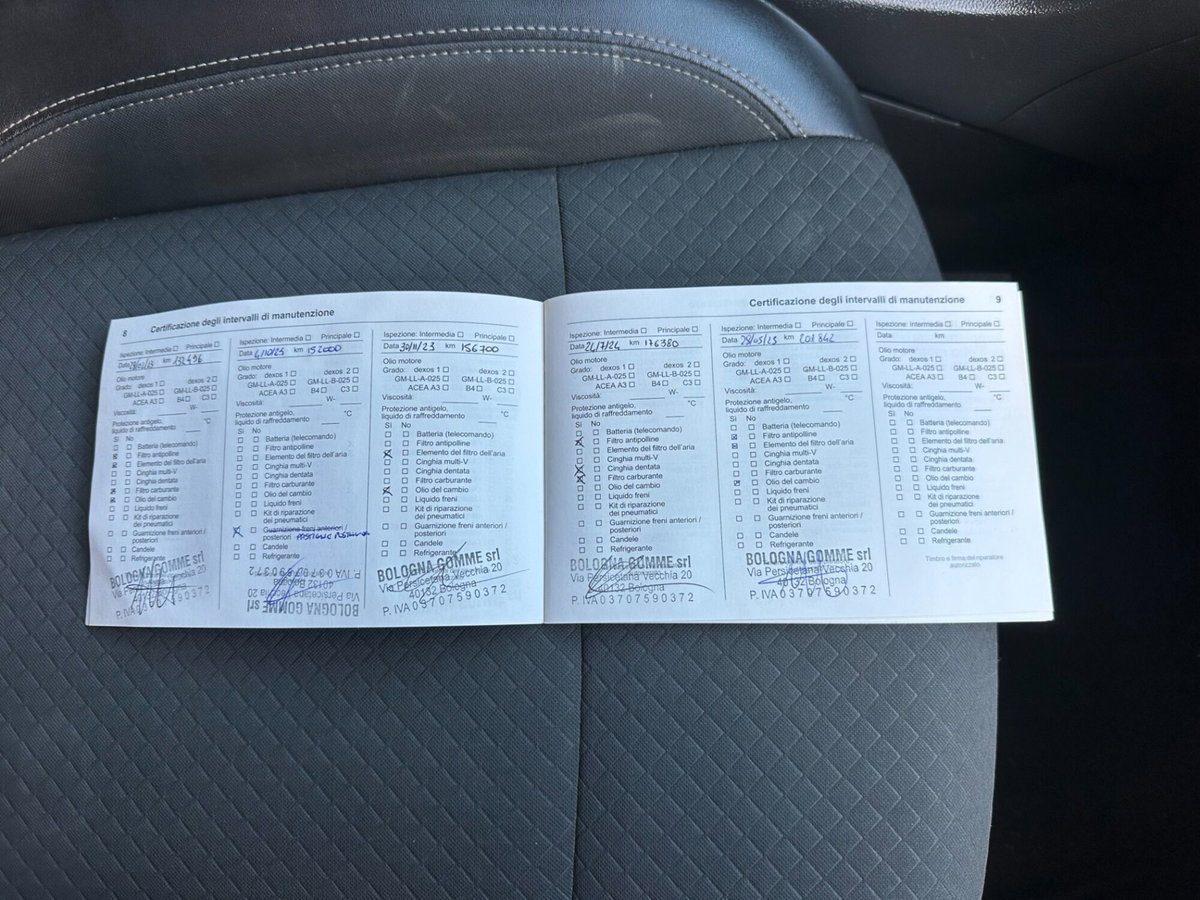 8 Certificazione degli intervalli di manutenzione
Ispezione: Intermedia ☐ Principale ☐
Data km 132496
Olio motore
Grado: dexos 1 ☐ dexos 2 ☐
GM-LL-A-025 ☐ GM-LL-B-025 ☐
ACEA A3 ☐ B4 ☐ C3 ☐
Viscosità: W-
Protezione antigelo,
liquido di raffreddamento °C
Sì No
☐ ☐ Batteria (telecomando)
☒ ☐ Filtro antipolline
☒ ☐ Elemento del filtro dell'aria
☐ ☐ Cinghia multi-V
☐ ☐ Cinghia dentata
☒ ☐ Filtro carburante
☒ ☐ Olio del cambio
☐ ☐ Liquido freni
☐ ☐ Kit di riparazione
dei pneumatici
☐ ☐ Guarnizione freni anteriori /
posteriori
☐ ☐ Candele
☐ ☐ Refrigerante
BOLOGNA GOMME srl
Via Persicetana Vecchia 20
P. IVA 03707590372
Ispezione: Intermedia ☐ Principale ☐
Data 4/10/23 km 152000
Olio motore
Grado: dexos 1 ☐ dexos 2 ☐
GM-LL-A-025 ☐ GM-LL-B-025 ☐
ACEA A3 ☐ B4 ☐ C3 ☐
Viscosità: W-
Protezione antigelo,
liquido di raffreddamento °C
Sì No
☐ ☐ Batteria (telecomando)
☐ ☐ Filtro antipolline
☐ ☐ Elemento del filtro dell'aria
☐ ☐ Cinghia multi-V
☐ ☐ Cinghia dentata
☐ ☐ Filtro carburante
☐ ☐ Olio del cambio
☐ ☐ Liquido freni
☐ ☐ Kit di riparazione
dei pneumatici
☒ ☐ Guarnizione freni anteriori /
posteriori
☐ ☐ Candele
☐ ☐ Refrigerante
BOLOGNA GOMME srl
Via Persicetana Vecchia 20
40132 Bologna
P. IVA 03707590372
Ispezione: Intermedia ☐ Principale ☐
Data 30/11/23 km 156700
Olio motore
Grado: dexos 1 ☐ dexos 2 ☐
GM-LL-A-025 ☐ GM-LL-B-025 ☐
ACEA A3 ☐ B4 ☐ C3 ☐
Viscosità: W-
Protezione antigelo,
liquido di raffreddamento °C
Sì No
☐ ☐ Batteria (telecomando)
☐ ☐ Filtro antipolline
☒ ☐ Elemento del filtro dell'aria
☐ ☐ Cinghia multi-V
☐ ☐ Cinghia dentata
☐ ☐ Filtro carburante
☒ ☐ Olio del cambio
☐ ☐ Liquido freni
☐ ☐ Kit di riparazione
dei pneumatici
☐ ☐ Guarnizione freni anteriori /
posteriori
☐ ☐ Candele
☐ ☐ Refrigerante
BOLOGNA GOMME srl
Via Persicetana Vecchia 20
40132 Bologna
P. IVA 03707590372
Certificazione degli intervalli di manutenzione 9
Ispezione: Intermedia ☐ Principale ☐
Data 24/7/24 km 176380
Olio motore
Grado: dexos 1 ☐ dexos 2 ☐
GM-LL-A-025 ☐ GM-LL-B-025 ☐
ACEA A3 ☐ B4 ☐ C3 ☐
Viscosità: W-
Protezione antigelo,
liquido di raffreddamento °C
Sì No
☐ ☐ Batteria (telecomando)
☒ ☐ Filtro antipolline
☐ ☐ Elemento del filtro dell'aria
☐ ☐ Cinghia multi-V
☒ ☐ Cinghia dentata
☒ ☐ Filtro carburante
☐ ☐ Olio del cambio
☐ ☐ Liquido freni
☐ ☐ Kit di riparazione
dei pneumatici
☐ ☐ Guarnizione freni anteriori /
posteriori
☐ ☐ Candele
☐ ☐ Refrigerante
BOLOGNA GOMME srl
Via Persicetana Vecchia 20
40132 Bologna
P. IVA 03707590372
Ispezione: Intermedia ☐ Principale ☐
Data 28/05/25 km 201842
Olio motore
Grado: dexos 1 ☐ dexos 2 ☐
GM-LL-A-025 ☐ GM-LL-B-025 ☐
ACEA A3 ☐ B4 ☐ C3 ☐
Viscosità: W-
Protezione antigelo,
liquido di raffreddamento °C
Sì No
☐ ☐ Batteria (telecomando)
☒ ☐ Filtro antipolline
☒ ☐ Elemento del filtro dell'aria
☐ ☐ Cinghia multi-V
☐ ☐ Cinghia dentata
☐ ☐ Filtro carburante
☒ ☐ Olio del cambio
☐ ☐ Liquido freni
☐ ☐ Kit di riparazione
dei pneumatici
☐ ☐ Guarnizione freni anteriori /
posteriori
☐ ☐ Candele
☐ ☐ Refrigerante
BOLOGNA GOMME srl
Via Persicetana Vecchia 20
40132 Bologna
P. IVA 03707590372
Ispezione: Intermedia ☐ Principale ☐
Data km
Olio motore
Grado: dexos 1 ☐ dexos 2 ☐
GM-LL-A-025 ☐ GM-LL-B-025 ☐
ACEA A3 ☐ B4 ☐ C3 ☐
Viscosità: W-
Protezione antigelo,
liquido di raffreddamento °C
Sì No
☐ ☐ Batteria (telecomando)
☐ ☐ Filtro antipolline
☐ ☐ Elemento del filtro dell'aria
☐ ☐ Cinghia multi-V
☐ ☐ Cinghia dentata
☐ ☐ Filtro carburante
☐ ☐ Olio del cambio
☐ ☐ Liquido freni
☐ ☐ Kit di riparazione
dei pneumatici
☐ ☐ Guarnizione freni anteriori /
posteriori
☐ ☐ Candele
☐ ☐ Refrigerante
Timbro e firma del riparatore
autorizzato.